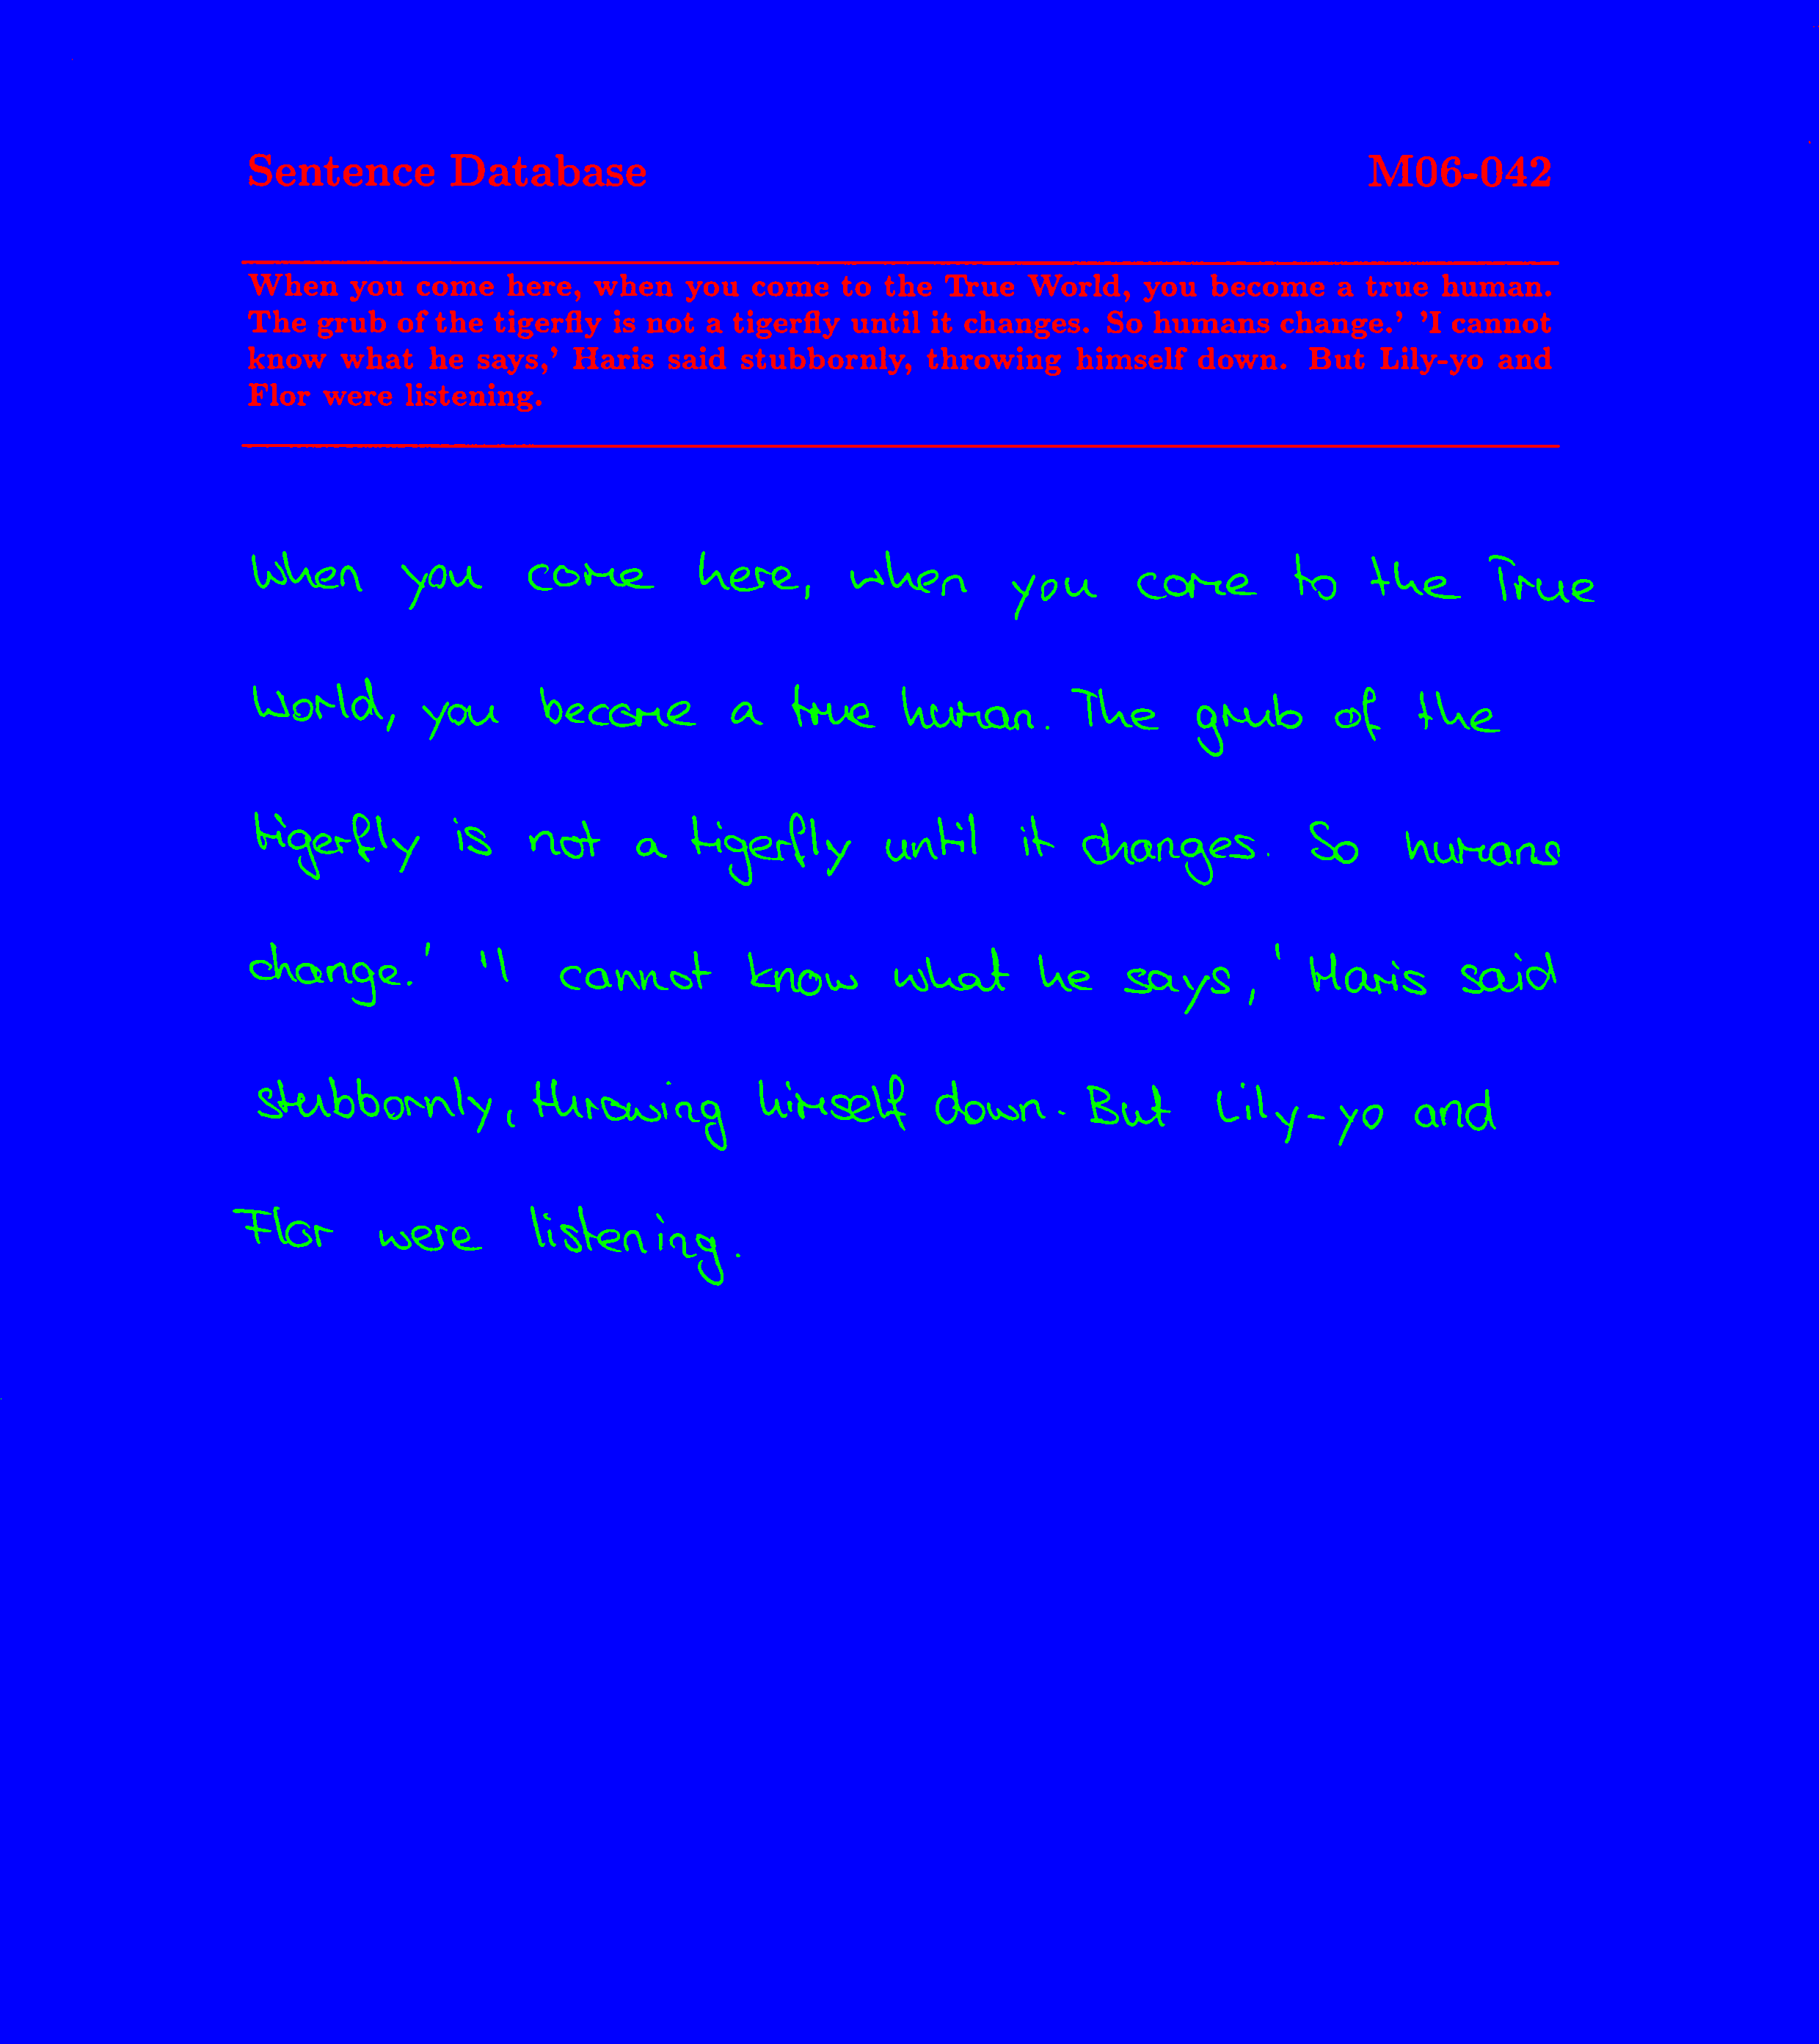 Sentence Database M06-042
When you come here, when you come to the True World, you become a true human.
The grub of the tigerfly is not a tigerfly until it changes. So humans change.' 'I cannot
know what he says,' Haris said stubbornly, throwing himself down. But Lily-yo and
Flor were listening.
When you come here, when you come to the True
World, you become a true human. The grub of the
tigerfly is not a tigerfly until it changes. So humans
change.' 'I cannot know what he says,' Haris said
stubbornly, throwing himself down. But Lily-yo and
Flor were listening.